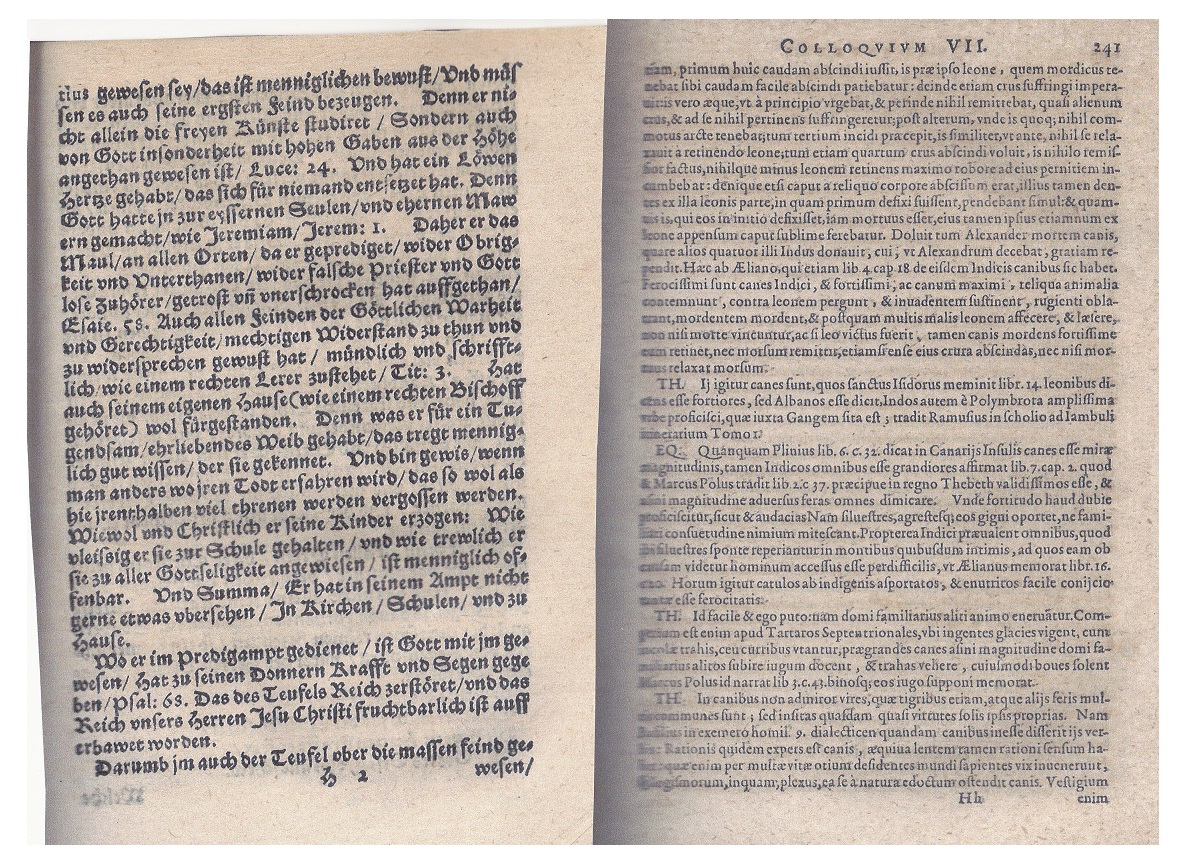 tius gewesen sey/das ist menniglichen bewust/Vnd müs
sen es auch seine ergsten Feind bezeugen. Denn er ni⸗
cht allein die freyen Künste studiret / Sondern auch
von Gott insonderheit mit hohen Gaben aus der Höhe
angethan gewesen ist/ Luce: 24. Vnd hat ein Löwen
Hertze gehabt/das sich für niemand entsetzet hat. Denn
Gott hatte jn zur eyssernen Seulen/vnd ehernen Maw
ern gemacht/wie Jeremiam/Jerem: 1. Daher er das
Maul/an allen Orten/da er geprediget/wider Obrig⸗
keit vnd Vnterthanen/wider falsche Priester vnd Gott
lose Zuhörer/getrost vñ vnerschrocken hat auffgethan/
Esaie. 58. Auch allen Feinden der Göttlichen Warheit
vnd Gerechtigkeit/mechtigen Widerstand zu thun vnd
zu widersprechen gewust hat / mündlich vnd schrifft⸗
lich/wie einem rechten Lerer zustehet/Tit: 3. Hat
auch seinem eigenen Hause(wie einem rechten Bischoff
gehöret) wol fürgestanden. Denn was er für ein Tu⸗
gendsam/ehrliebendes Weib gehabt/das tregt mennig⸗
lich gut wissen/ der sie gekennet. Vnd bin gewis/wenn
man anders wo jren Todt erfahren wird/das so wol als
hie jrenthalben viel threnen werden vergossen werden.
Wiewol vnd Christlich er seine Kinder erzogen: Wie
vleissig er sie zur Schule gehalten/vnd wie trewlich er
sie zu aller Gottseligkeit angewiesen / ist menniglich of⸗
fenbar. Vnd Summa/ Er hat in seinem Ampt nicht
gerne etwas vbersehen/ In Kirchen/ Schulen/ vnd zu
Hause.
Wo er im Predigampt gedienet / ist Gott mit jm ge⸗
wesen/ Hat zu seinen Donnern Krafft vnd Segen gege
ben/Psal: 68. Das des Teufels Reich zerstöret/vnd das
Reich vnsers Herren Jesu Christi fruchtbarlich ist auff
erbawet worden.
Darumb jm auch der Teufel ober die massen feind ge⸗
H 2 wesen/
COLLOQVIVM VII. 241
primum huic caudam abscindi iussit, is præ ipso leone, quem mordicus te-
nebat sibi caudam facile abscindi patiebatur: deinde etiam crus suffringi impera-
vero æque, vt à principio vrgebat, & perinde nihil remittebat, quasi alienum
crus, & ad se nihil pertinens suffringeretur; post alterum, vnde is quoq; nihil com-
motus arcte tenebat; tum tertium incidi præcepit, is similiter, vt ante, nihil se rela-
xauit à retinendo leone; tum etiam quartum crus abscindi voluit, is nihilo remis-
sior factus, nihilque minus leonem retinens maximo robore ad eius pernitiem in-
cumbebat: denique etsi caput a reliquo corpore abscissum erat, illius tamen den-
tes ex illa leonis parte, in quam primum defixi fuissent, pendebant simul: & quam-
uis is, qui eos in initio defixisset, iam mortuus esset, eius tamen ipsius etiamnum ex
leone appensum caput sublime ferebatur. Doluit tum Alexander mortem canis,
quare alios quatuor illi Indus donauit, cui, vt Alexandrum decebat, gratiam re-
pendit. Hæc ab Æliano, qui etiam lib. 4. cap. 18 de eisdem Indicis canibus sic habet.
Ferocissimi sunt canes Indici, & fortissimi, ac canum maximi, reliqua animalia
contemnunt, contra leonem pergunt, & inuadentem sustinent, rugienti obla-
trant, mordentem mordent, & postquam multis malis leonem affecere, & læsere,
non nisi morte vincuntur, ac si leo victus fuerit, tamen canis mordens fortissime
eam retinet, nec morsum remittit, etiamsi ense eius crura abscindas, nec nisi mor-
tuus relaxat morsum.
TH. Ij igitur canes sunt, quos sanctus Isidorus meminit libr. 14. leonibus di-
cens esse fortiores, sed Albanos esse dicit, Indos autem è Polymbrota amplissima
vrbe proficisci, quæ iuxta Gangem sita est, tradit Ramusius in scholio ad Iambuli
itinerarium Tomo 1.
EQ. Quanquam Plinius lib. 6. c. 32. dicat in Canarijs Insulis canes esse miræ
magnitudinis, tamen Indicos omnibus esse grandiores affirmat lib. 7. cap. 2. quod
& Marcus Polus tradit lib. 2. c 37. præcipue in regno Thebeth validissimos esse, &
asini magnitudine aduersus feras omnes dimicare. Vnde fortitudo haud dubie
proficiscitur, sicut & audacia: Nam siluestres, agrestesq; eos gigni oportet, ne fami-
liari consuetudine nimium mitescant. Propterea Indici præualent omnibus, quod
ibi siluestres sponte reperiantur in montibus quibusdum intimis, ad quos eam ob
causam videtur hominum accessus esse perdifficilis, vt Ælianus memorat libr. 16.
Horum igitur catulos ab indigenis asportatos, & enutritos facile conijcio
tantæ esse ferocitatis.
TH. Id facile & ego puto: nam domi familiarius aliti animo eneruãtur. Com-
pertum est enim apud Tartaros Septentrionales, vbi ingentes glacies vigent, cum
incolæ trahis, ceu curribus vtantur, prægrandes canes asini magnitudine domi fa-
miliarius alitos subire iugum docent, & trahas vehere, cuiusmodi boues solent
Marcus Polus id narrat lib 3. c. 43. binosq; eos iugo supponi memorat.
TH. In canibus non admiror vires, quæ tigribus etiam, atque alijs feris mul-
communes sunt; sed insitas quasdam quasi virtutes solis ipsis proprias. Nam
Basilius in exemero homil. 9. dialecticen quandam canibus inesse disserit ijs ver-
bis: Rationis quidem expers est canis, æquiualentem tamen rationi sensum ha-
bet: quæ enim per multæ vitæ otium desidentes mundi sapientes vix inuenerunt,
syllogismorum, inquam, plexus, ea se à natura edoctum ostendit canis. Vestigium
Hh enim